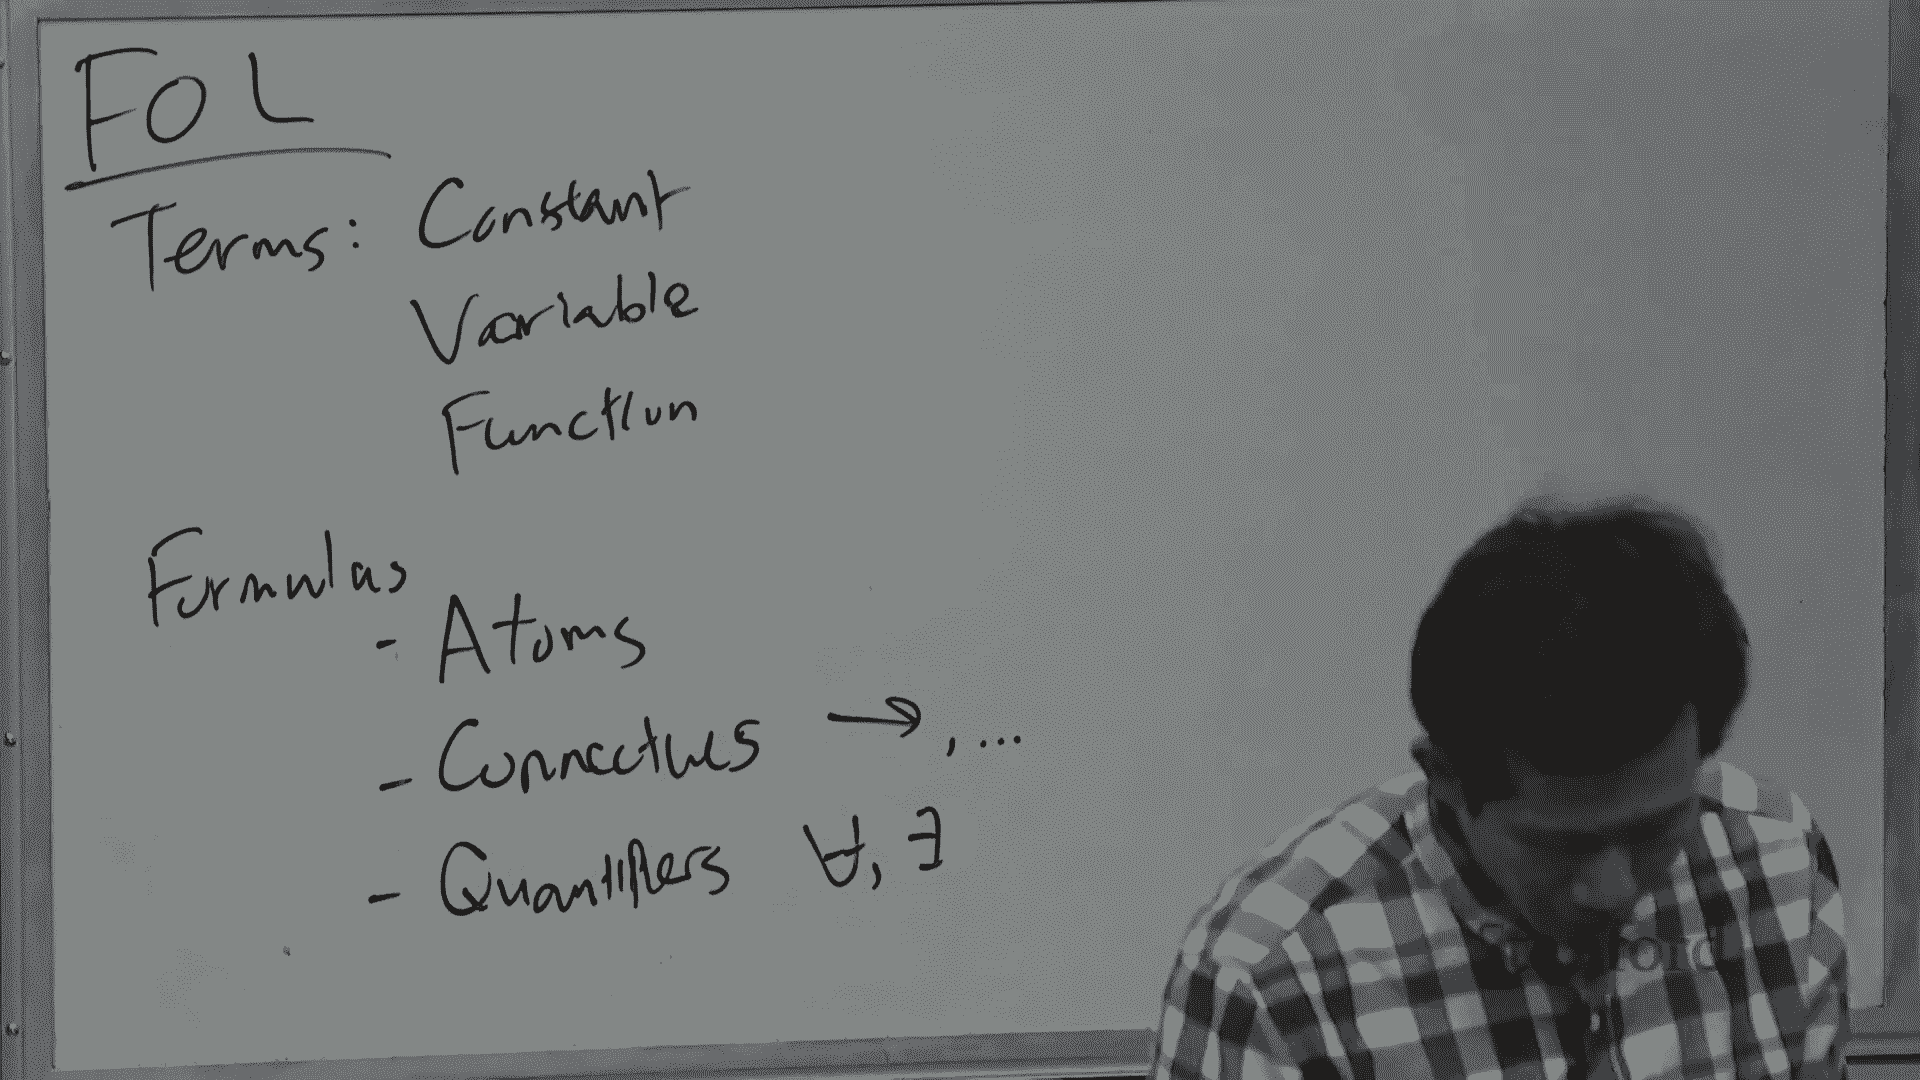 FOL
Terms: Constant
Variable
Function
Formulas
- Atoms
- Connectives →, ...
- Quantifiers ∀, ∃
Stanford